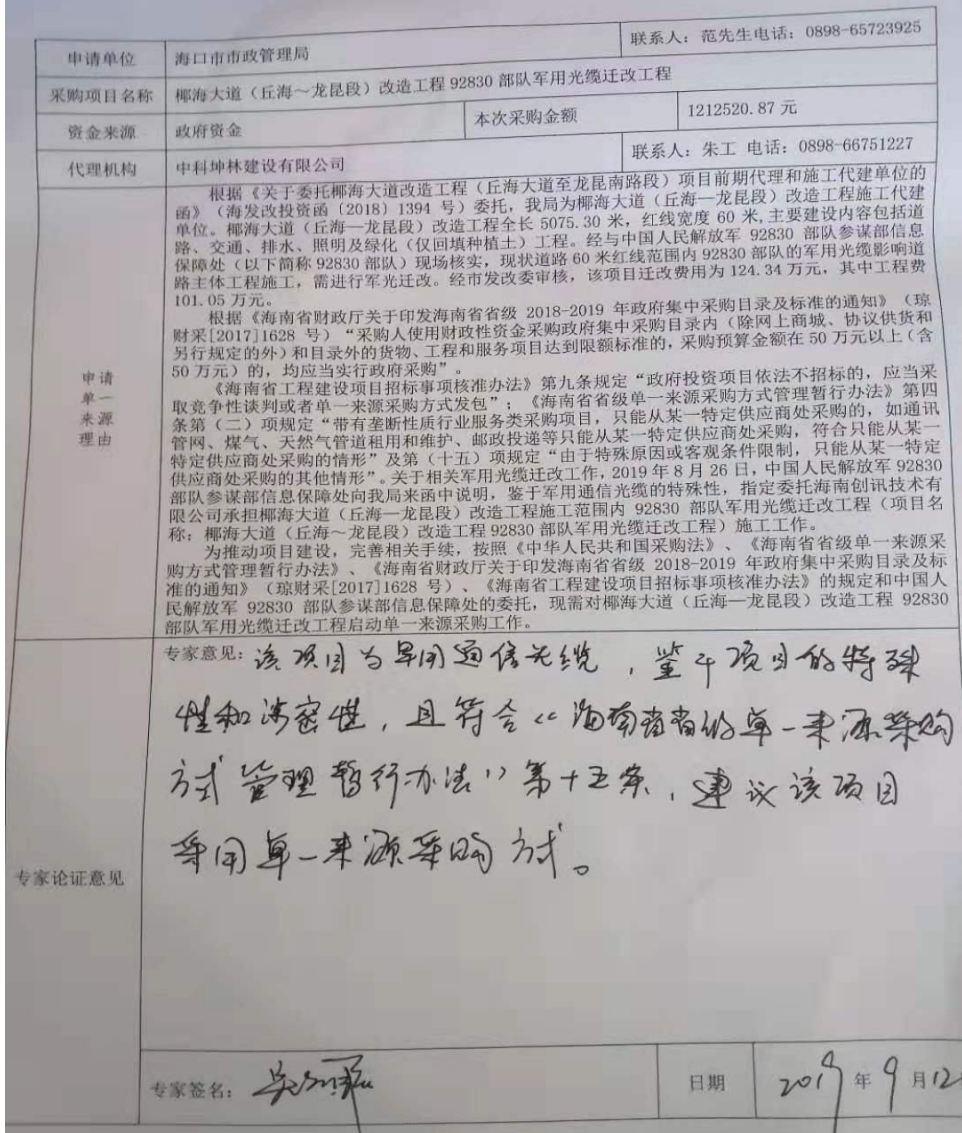 申请单位 海口市市政管理局 联系人：范先生电话：0898-65723925
采购项目名称 椰海大道（丘海～龙昆段）改造工程 92830 部队军用光缆迁改工程
资金来源 政府资金 本次采购金额 1212520.87 元
代理机构 中科坤林建设有限公司 联系人：朱工 电话：0898-66751227
申请
单一
来源
理由
根据《关于委托椰海大道改造工程（丘海大道至龙昆南路段）项目前期代理和施工代建单位的
函》（海发改投资函〔2018〕1394 号）委托，我局为椰海大道（丘海—龙昆段）改造工程施工代建
单位。椰海大道（丘海—龙昆段）改造工程全长 5075.30 米，红线宽度 60 米,主要建设内容包括道
路、交通、排水、照明及绿化（仅回填种植土）工程。经与中国人民解放军 92830 部队参谋部信息
保障处（以下简称 92830 部队）现场核实，现状道路 60 米红线范围内 92830 部队的军用光缆影响道
路主体工程施工，需进行军光迁改。经市发改委审核，该项目迁改费用为 124.34 万元，其中工程费
101.05 万元。
根据《海南省财政厅关于印发海南省省级 2018-2019 年政府集中采购目录及标准的通知》（琼
财采[2017]1628 号）“采购人使用财政性资金采购政府集中采购目录内（除网上商城、协议供货和
另行规定的外）和目录外的货物、工程和服务项目达到限额标准的，采购预算金额在 50 万元以上（含
50 万元）的，均应当实行政府采购”。
《海南省工程建设项目招标事项核准办法》第九条规定“政府投资项目依法不招标的，应当采
取竞争性谈判或者单一来源采购方式发包”；《海南省省级单一来源采购方式管理暂行办法》第四
条第（二）项规定“带有垄断性质行业服务类采购项目，只能从某一特定供应商处采购的，如通讯
管网、煤气、天然气管道租用和维护、邮政投递等只能从某一特定供应商处采购，符合只能从某一
特定供应商处采购的情形”及第（十五）项规定“由于特殊原因或客观条件限制，只能从某一特定
供应商处采购的其他情形”。关于相关军用光缆迁改工作，2019 年 8 月 26 日，中国人民解放军 92830
部队参谋部信息保障处向我局来函中说明，鉴于军用通信光缆的特殊性，指定委托海南创讯技术有
限公司承担椰海大道（丘海—龙昆段）改造工程施工范围内 92830 部队军用光缆迁改工程（项目名
称：椰海大道（丘海～龙昆段）改造工程 92830 部队军用光缆迁改工程）施工工作。
为推动项目建设，完善相关手续，按照《中华人民共和国采购法》、《海南省省级单一来源采
购方式管理暂行办法》、《海南省财政厅关于印发海南省省级 2018-2019 年政府集中采购目录及标
准的通知》（琼财采[2017]1628 号）、《海南省工程建设项目招标事项核准办法》的规定和中国人
民解放军 92830 部队参谋部信息保障处的委托，现需对椰海大道（丘海—龙昆段）改造工程 92830
部队军用光缆迁改工程启动单一来源采购工作。
专家论证意见
专家意见：该项目为军用通信光缆，鉴于项目的特殊
性和涉密性，且符合《海南省省级单一来源采购
方式管理暂行办法》第十五条，建议该项目
采用单一来源采购方式。
专家签名： 日期 2019 年 9 月12